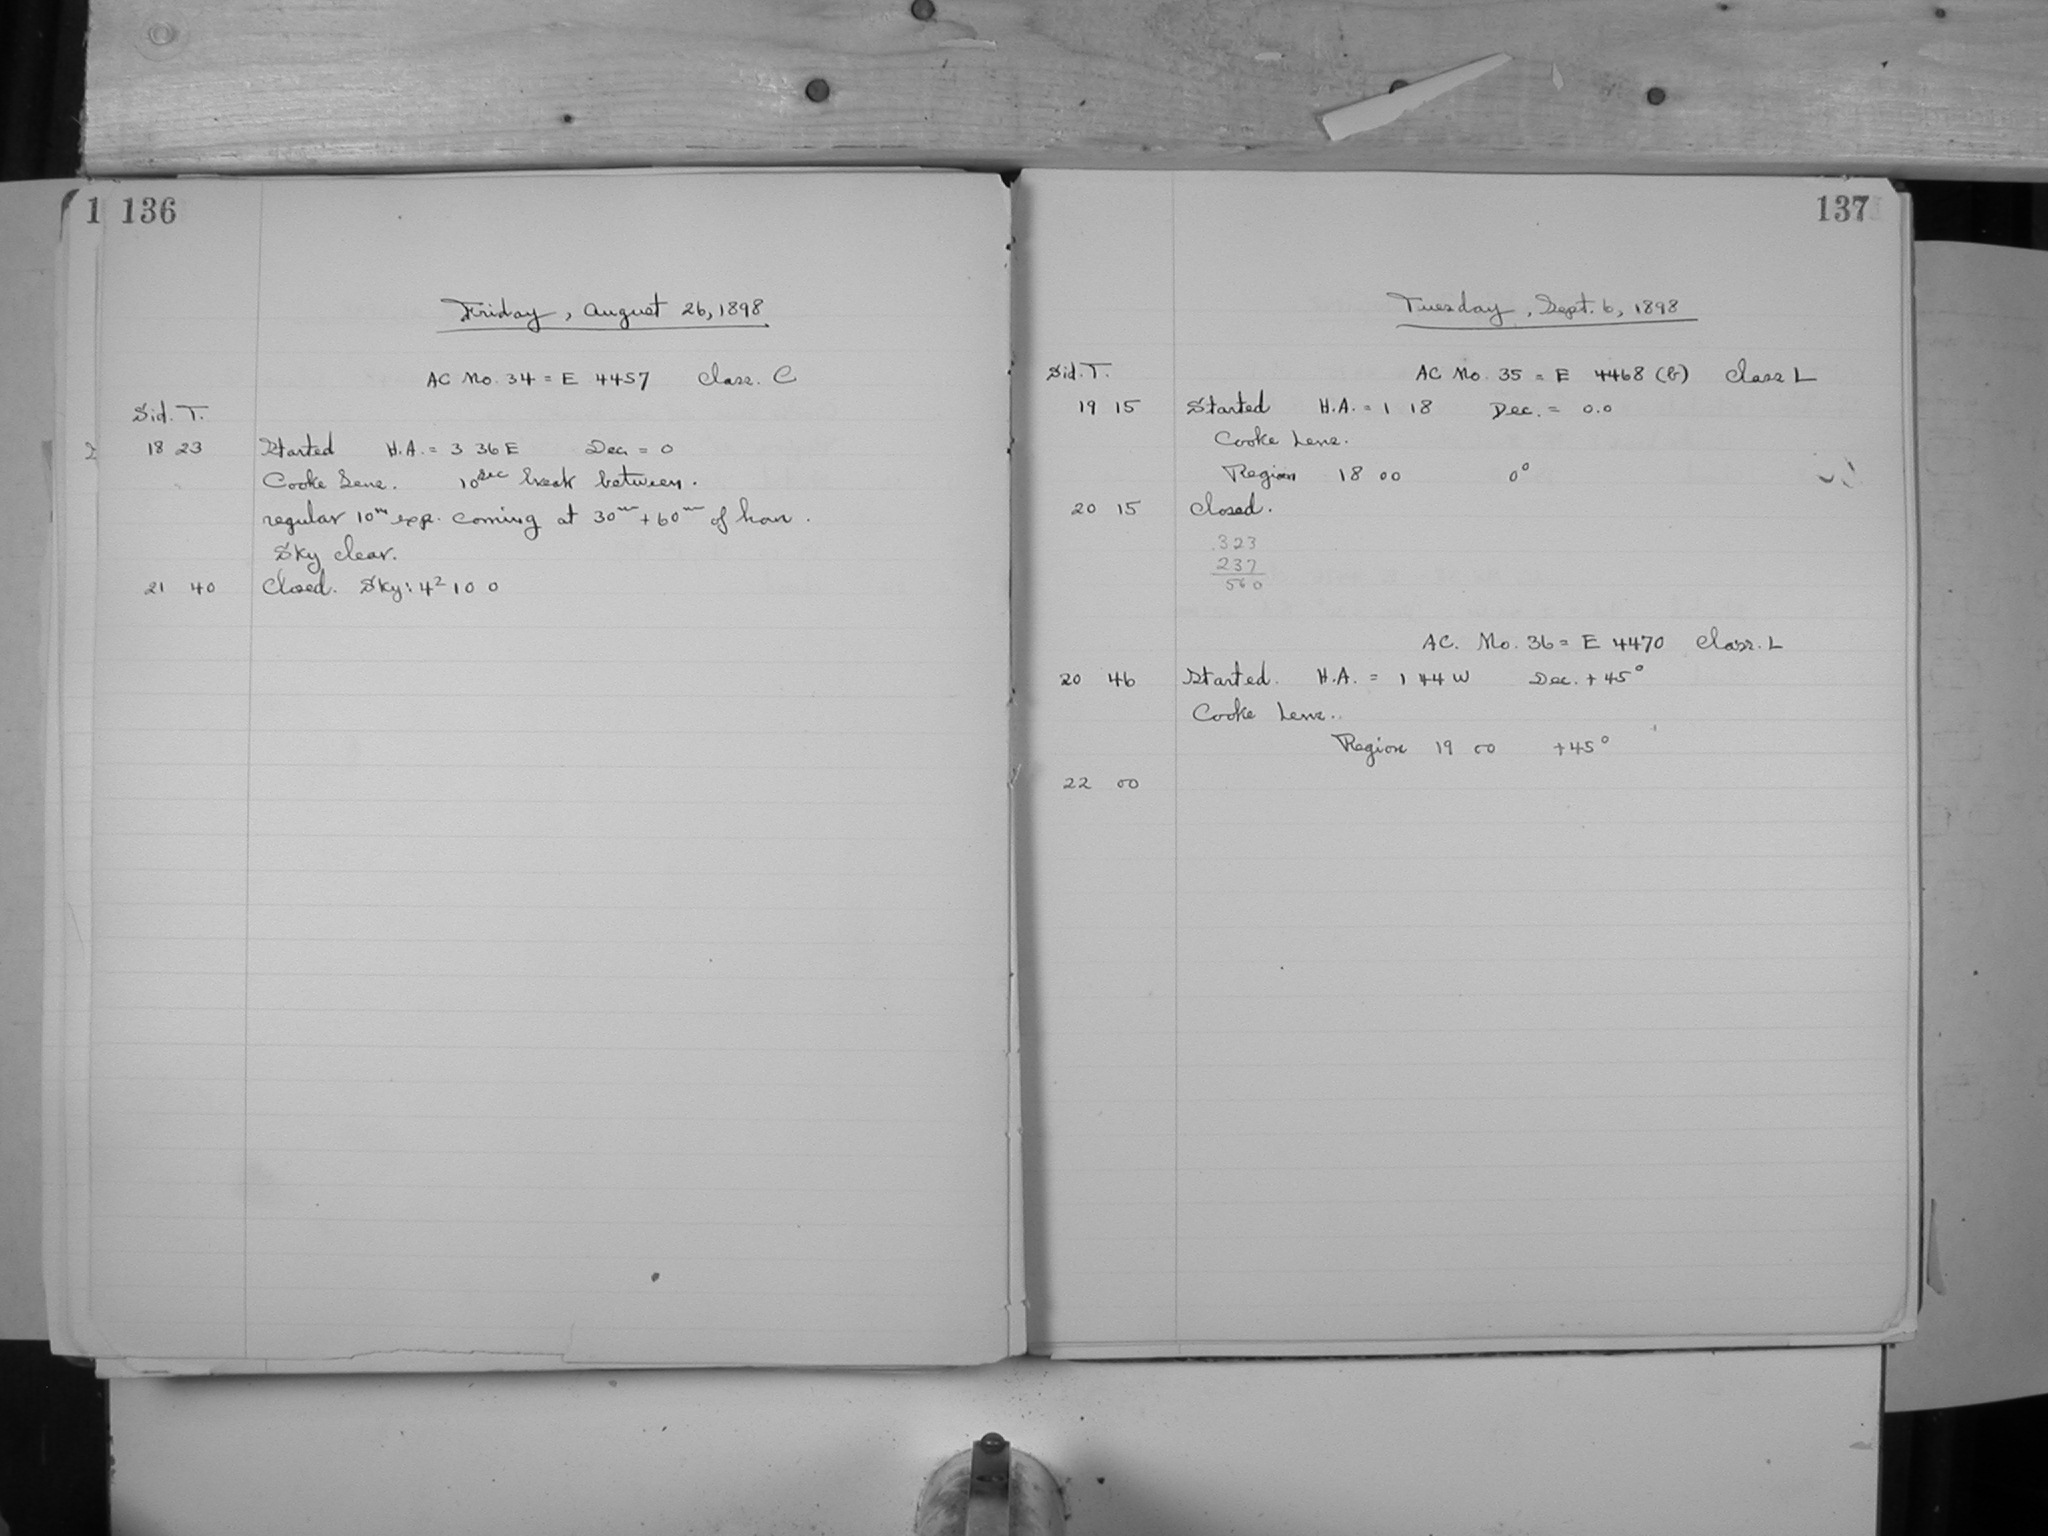 1 136
Friday, August 26, 1898
AC No. 34 = E 4457 Class. C
Sid. T.
18 23 Started H.A. = 3 36 E Dec. = 0
Cooke Lens. 10sec break between.
regular 10m exp. coming at 30m + 60m of hour.
Sky clear.
21 40 Closed. Sky: 4² 10 0
137
Tuesday, Sept. 6, 1898
Sid. T. AC No. 35 = E 4468 (b) Class L
19 15 Started H.A. = 1 18 Dec. = 0.0
Cooke Lens.
Region 18 00 0°
20 15 Closed.
323
237
560
AC. No. 36 = E 4470 Class. L
20 46 Started. H.A. = 1 44 W Dec. + 45°
Cooke Lens.
Region 19 00 +45°
22 00